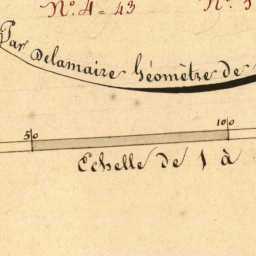 N.º 4 - 43 N.º
Par Delamaire Géomètre de
50 100
Echelle de 1 à